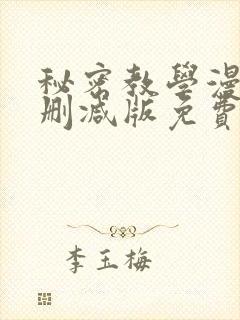 秘密教學漫
刪減版免費
李玉梅